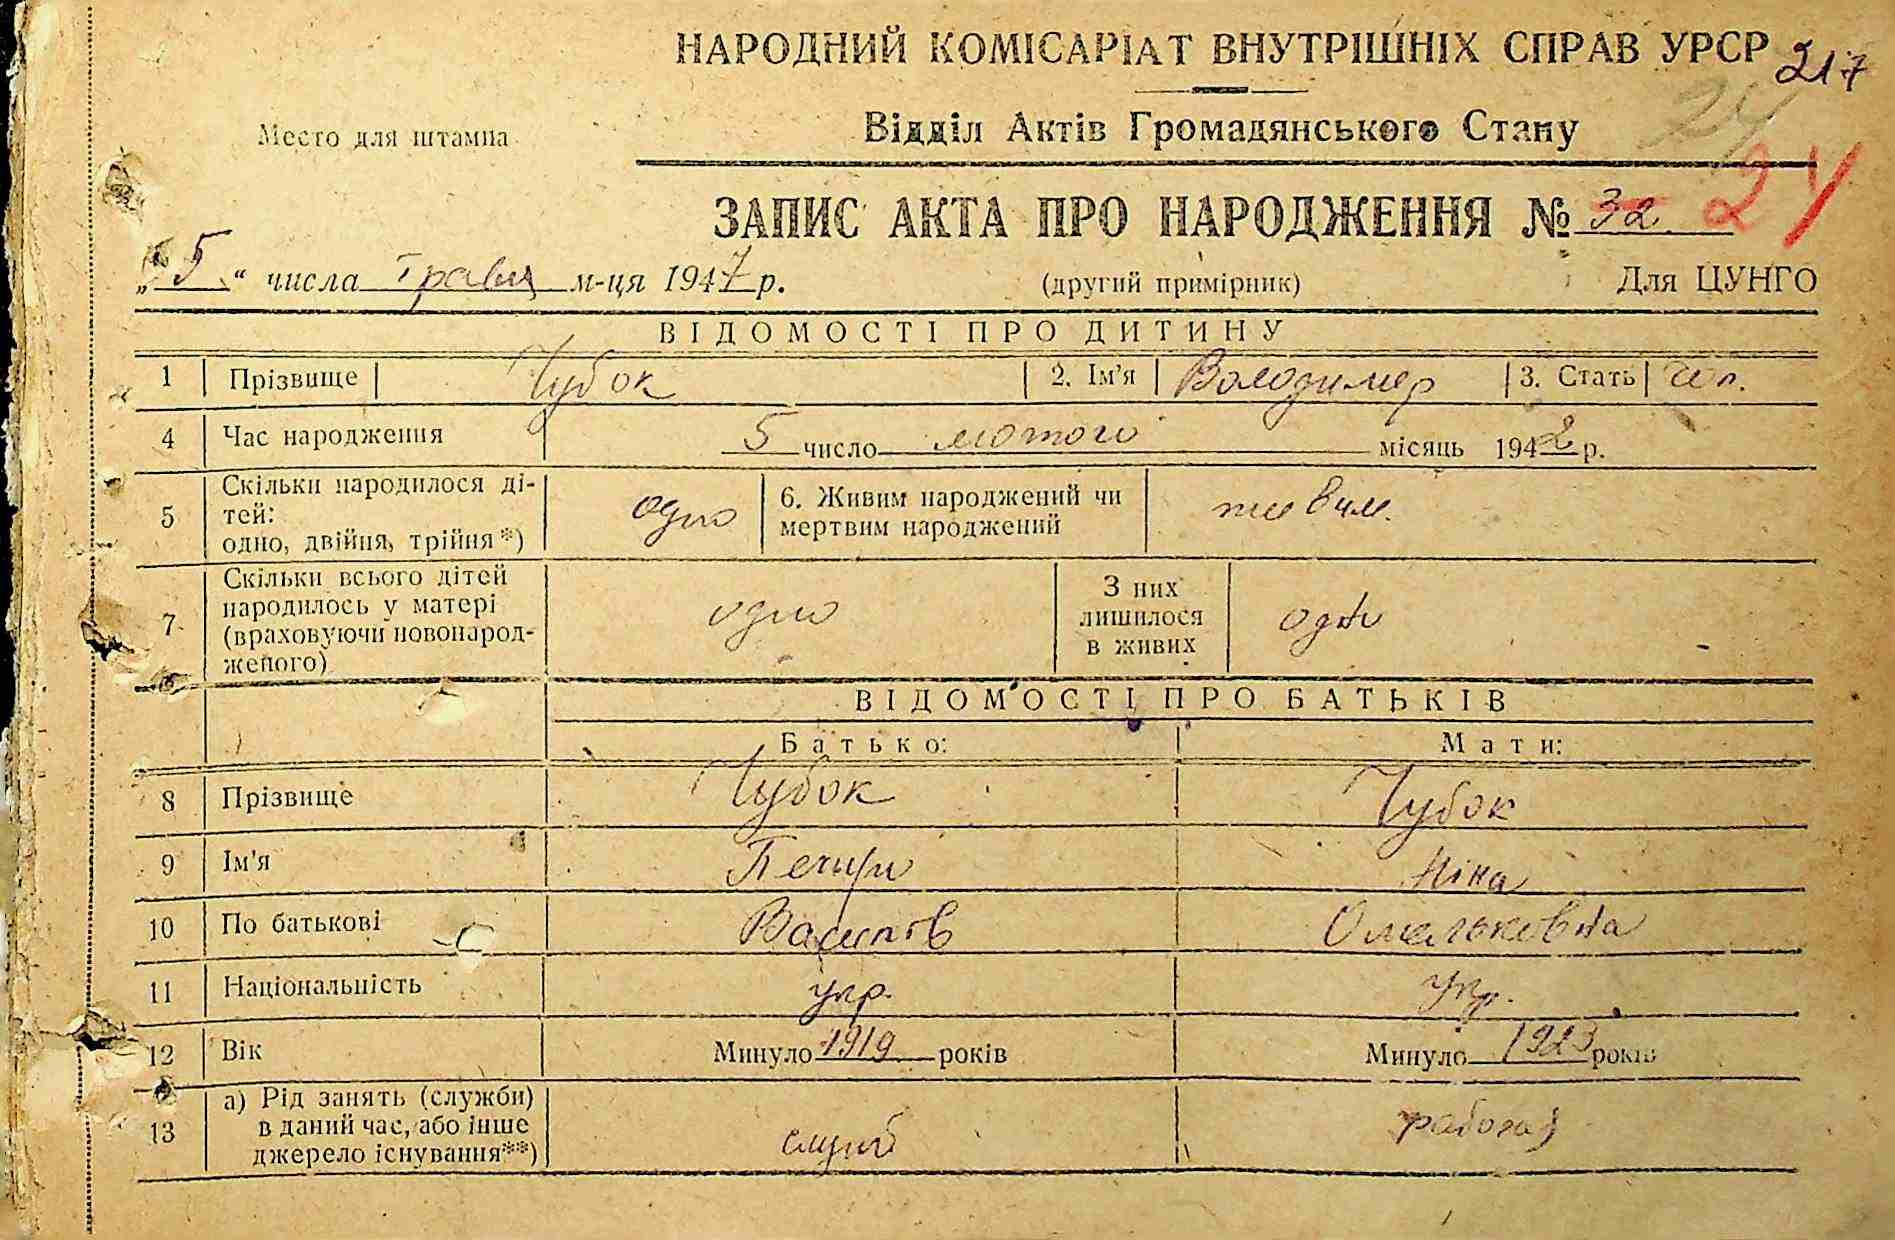 НАРОДНИЙ КОМІСАРІАТ ВНУТРІШНІХ СПРАВ УРСР 217
24
Место для штампа
Відділ Актів Громадянського Стану
ЗАПИС АКТА ПРО НАРОДЖЕННЯ № 32 24
„5“ числа травня м-ця 1947 р. (другий примірник) Для ЦУНГО
ВІДОМОСТІ ПРО ДИТИНУ
1 Прізвище Чубок 2. Ім'я Володимер 3. Стать чол.
4 Час народження 5 число лютого місяць 1942 р.
5 Скільки народилося ді-
тей:
одно, двійня, трійня*) одно 6. Живим народжений чи
мертвим народжений живим.
7 Скільки всього дітей
народилось у матері
(враховуючи новонарод-
женого) одно З них
лишилося
в живих одно
ВІДОМОСТІ ПРО БАТЬКІВ
Батько: Мати:
8 Прізвище Чубок Чубок
9 Ім'я Ніна
10 По батькові Омельковна
11 Національність укр. укр.
12 Вік Минуло 1919 років Минуло 1923 років
13 а) Рід занять (служби)
в даний час, або інше
джерело існування**) служб